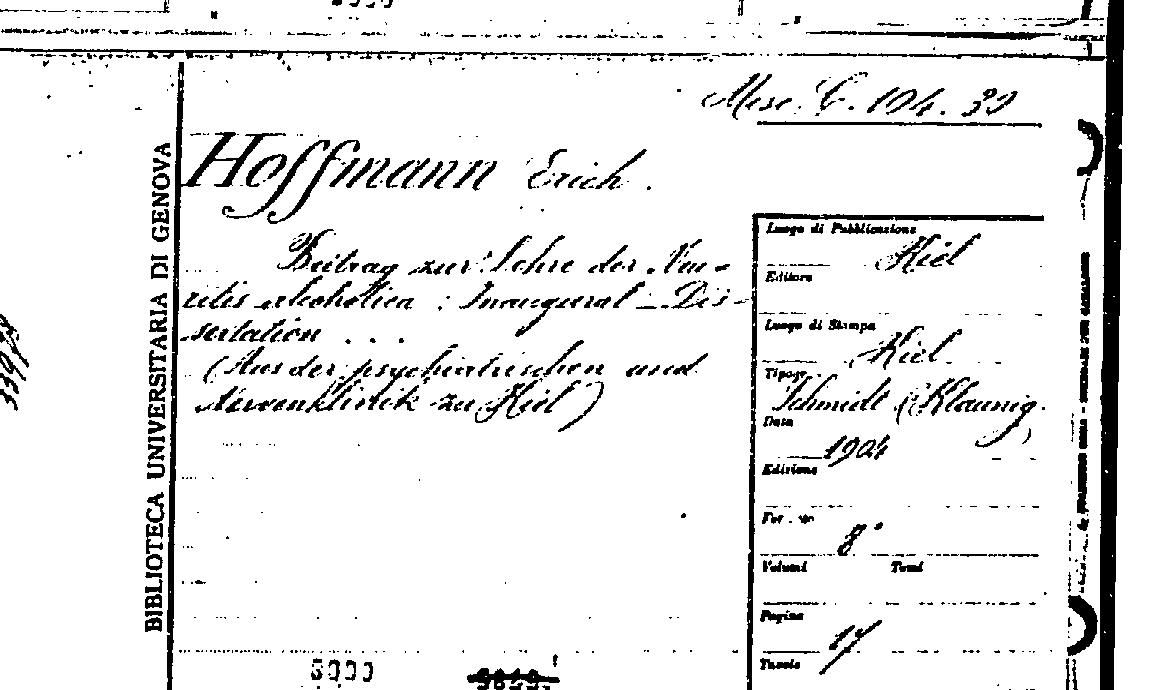 Misc. C. 104. 39
BIBLIOTECA UNIVERSITARIA DI GENOVA
Hoffmann Erich.
Beitrag zur Lehre der Neu-
ritis alcoholica : Inaugural - Dis-
sertation . . .
(Aus der psychiatrischen und
Nervenklinik zu Kiel)
Luogo di Pubblicazione
Kiel
Editore
Luogo di Stampa
Kiel
Tipogr.
Schmidt (Klaunig.
)
Data
1904
Edizione
8°
Volumi Tomi
Pagine
17
Tavole